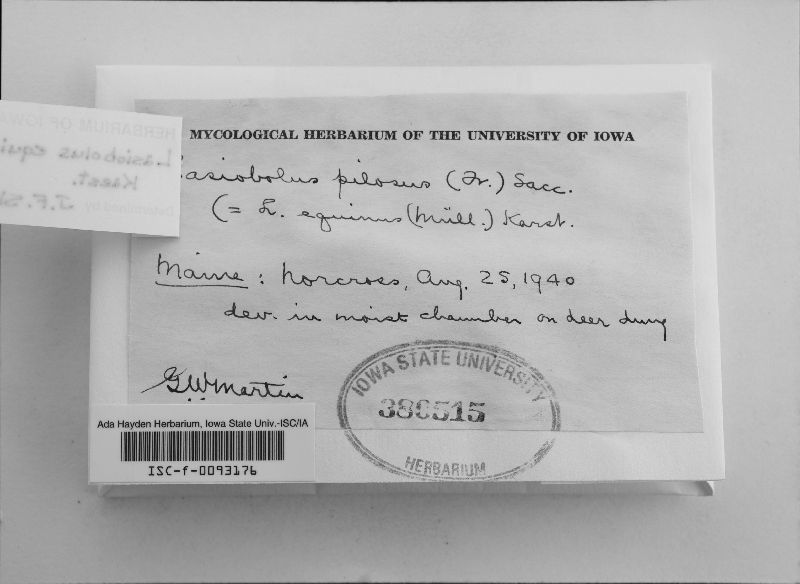 MYCOLOGICAL HERBARIUM OF THE UNIVERSITY OF IOWA
Lasiobolus pilosus (Fr.) Sacc.
(= L. equinus (Müll.) Karst.
Maine: Norcross, Aug. 25, 1940
dev. in moist chamber on deer dung
GWMartin
IOWA STATE UNIVERSITY
386515
HERBARIUM
Ada Hayden Herbarium, Iowa State Univ.-ISC/IA
ISC-f-0093176
HERBARIUM OF IOWA
Lasiobolus equi
Karst.
Determined by J.F.